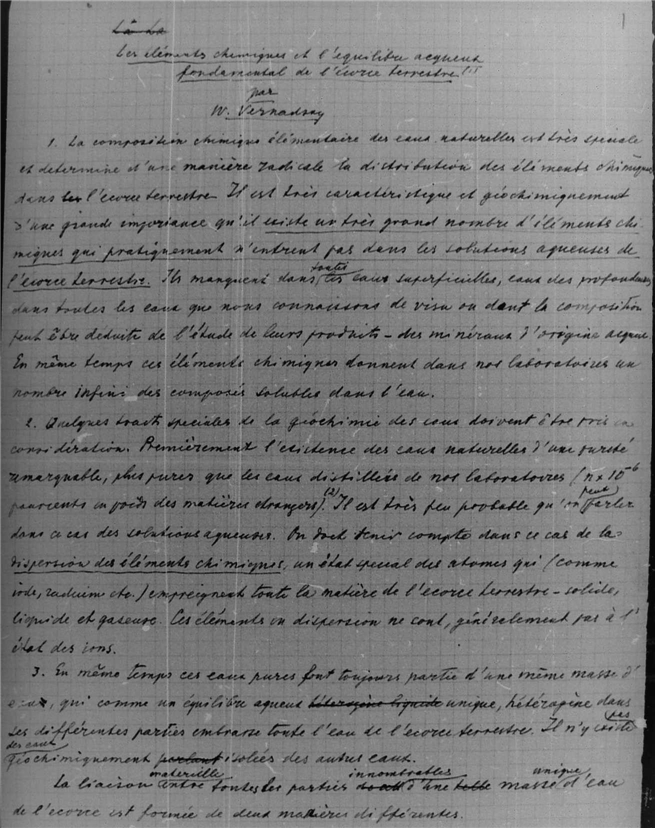 1
La La
Les éléments chimiques et l'équilibre aqueux
fondamental de l'écorce terrestre (1)
par
W. Vernadsky
1. La composition chimique élémentaire des eaux naturelles est très spéciale
et determine d'une manière radicale la distribution des éléments chimiques
dans l'écorce terrestre. Il est très caractéristique et géochimiquement
d'une grande importance qu'il existe un très grand nombre d'éléments chi-
miques qui pratiquement n'entrent pas dans les solutions aqueuses de
l'écorce terrestre. Ils manquent dans toutes les eaux superficielles, eaux des profondeurs,
dans toutes les eaux que nous connaissons de visu ou dont la composition
peut être déduite de l'étude de leurs produits – des minéraux d'origine aqueuse.
En même temps ces éléments chimiques donnent dans nos laboratoires un
nombre infini des composés solubles dans l'eau.
2. Quelques traits speciales de la géochimie des eaux doivent être pris en
considération. Premièrement l'existence des eaux naturelles d'une pureté
remarquable, plus pures que les eaux distillées de nos laboratoires (n × 10⁻⁶
pourcents en poids des matières étrangers) (2). Il est très peu probable qu'on peut parler
dans ce cas des solutions aqueuses. On doit tenir compte dans ce cas de la
dispersion des éléments chimiques, un état special des atomes qui (comme
iode, radium etc.) empreignent toute la matière de l'écorce terrestre – solide,
liquide et gaseuse. Ces éléments en dispersion ne sont, généralement pas à l'
état des ions.
3. En même temps ces eaux pures font toujours partie d'une même masse d'
eau, qui comme un équilibre aqueux hétérogène liquide unique, hétérogène dans
ses différentes parties embrasse toute l'eau de l'écorce terrestre. Il n'y existe pas
des eaux géochimiquement isolées des autres eaux.
La liaison materielle entre toutes les parties innombrables d'une belle unique masse d'eau
de l'écorce est formée de deux manières différentes.